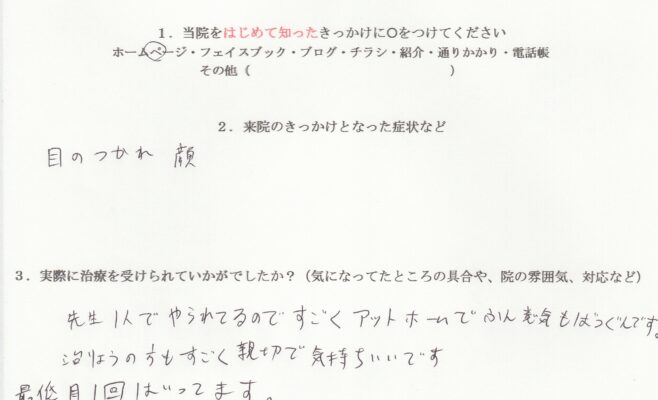 1．当院をはじめて知ったきっかけに○をつけてください
ホームページ・フェイスブック・ブログ・チラシ・紹介・通りかかり・電話帳
その他（　　　　　　　　　　　　　　）
2．来院のきっかけとなった症状など
目のつかれ 顔
3．実際に治療を受けられていかがでしたか？（気になってたところの具合や、院の雰囲気、対応など）
先生1人でやられてるのですごくアットホームでふんい気もばつぐんです。
治りょうの方もすごく親切で気持ちいいです
最低月1回はいってます。